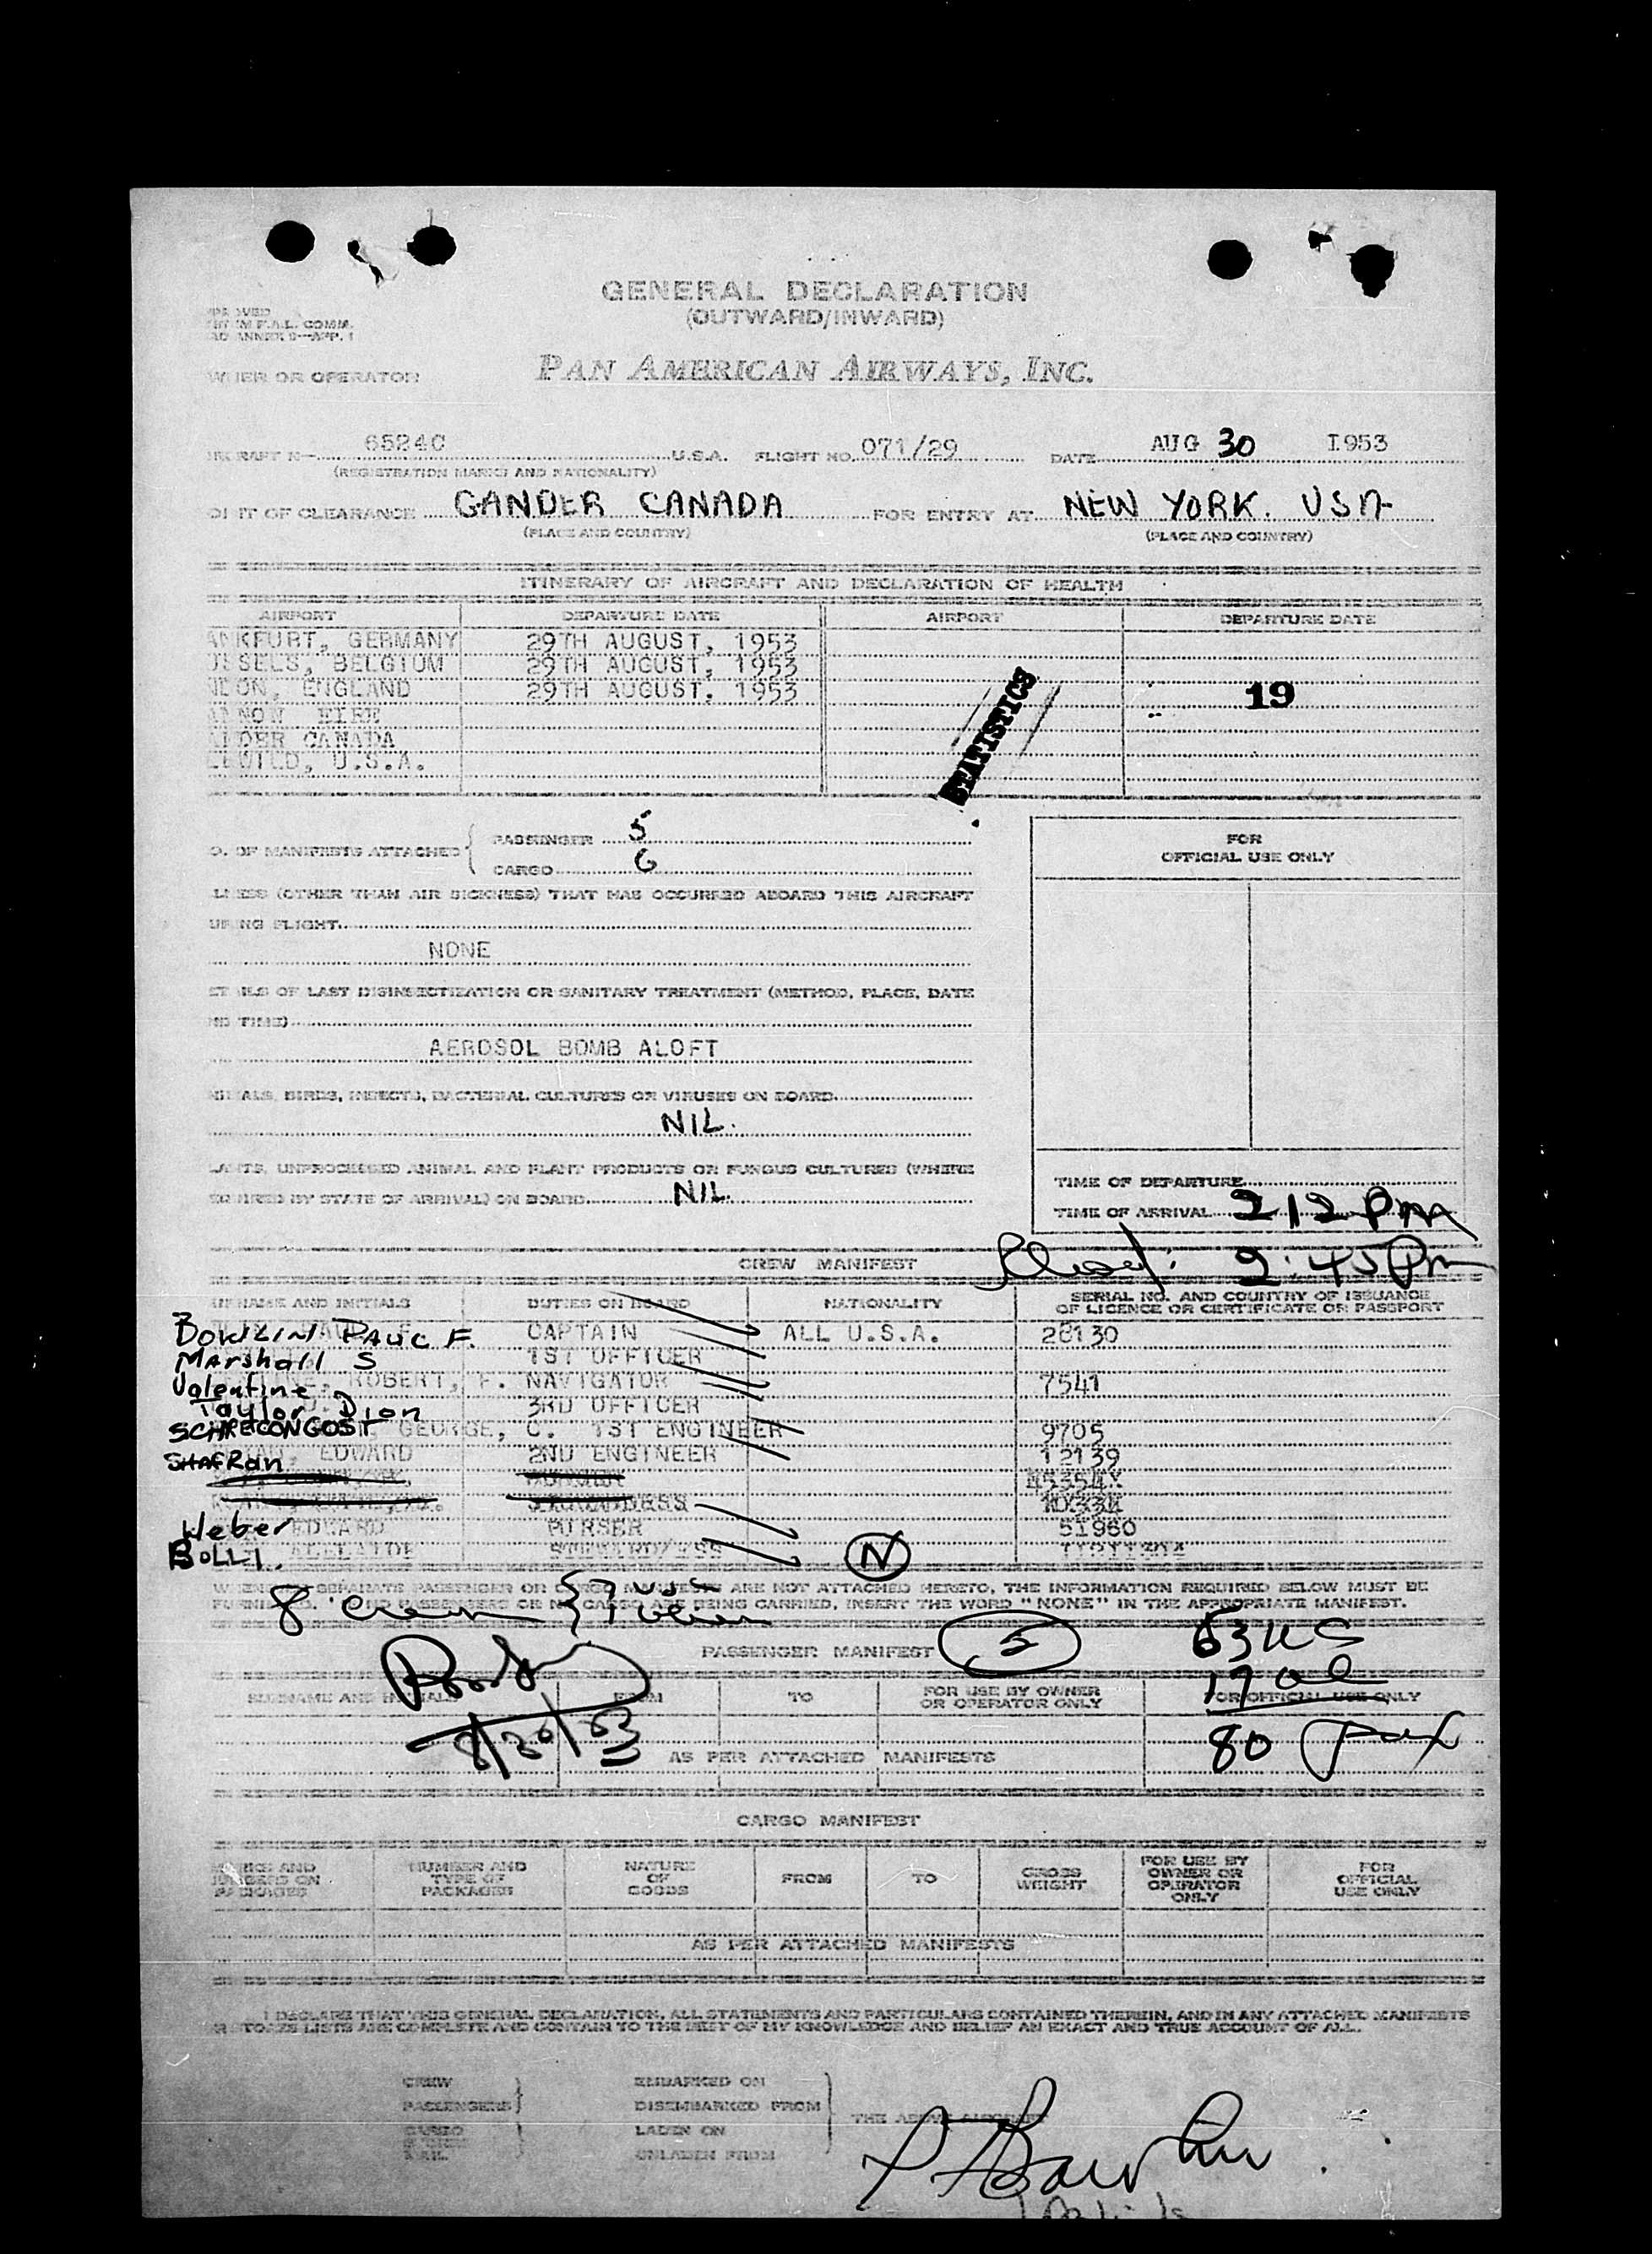 GENERAL DECLARATION
(OUTWARD/INWARD)
F.A.L. COMM.
ANNEX 9—APP. 1
OR OPERATOR PAN AMERICAN AIRWAYS, INC.
65240 U.S.A. FLIGHT NO. 071/29 DATE AUG 30 1953
(REGISTRATION MARKS AND NATIONALITY)
OF CLEARANCE GANDER CANADA FOR ENTRY AT NEW YORK. USA
(PLACE AND COUNTRY) (PLACE AND COUNTRY)
ITINERARY OF AIRCRAFT AND DECLARATION OF HEALTH
AIRPORT DEPARTURE DATE AIRPORT DEPARTURE DATE
ANKFURT, GERMANY 29TH AUGUST, 1953
SSELS, BELGIUM 29TH AUGUST, 1953
ENGLAND 29TH AUGUST. 1953
19
STATISTICS
EIRE
CANADA
U.S.A.
OF MANIFESTS ATTACHED { PASSENGER 5
CARGO 6
(OTHER THAN AIR SICKNESS) THAT HAS OCCURRED ABOARD THIS AIRCRAFT
FLIGHT
NONE
OF LAST DISINSECTIZATION OR SANITARY TREATMENT (METHOD, PLACE, DATE
TIME)
AEROSOL BOMB ALOFT
BIRDS, INSECTS, BACTERIAL CULTURES OR VIRUSES ON BOARD
NIL.
UNPROCESSED ANIMAL AND PLANT PRODUCTS OR FUNGUS CULTURES (WHERE
BY STATE OF ARRIVAL) ON BOARD NIL.
FOR
OFFICIAL USE ONLY
TIME OF DEPARTURE
TIME OF ARRIVAL 212 PM
2:45 PM
CREW MANIFEST
AND INITIALS DUTIES ON BOARD NATIONALITY SERIAL NO. AND COUNTRY OF ISSUANCE
OF LICENCE OR CERTIFICATE OR PASSPORT
PAUL F. CAPTAIN ALL U.S.A. 28130
Marshall S 1ST OFFICER
Valentine ROBERT, F. NAVIGATOR 7541
Taylor Dion 3RD OFFICER
SCHRECONGOST GEORGE, C. 1ST ENGINEER 9705
SHAFRan EDWARD 2ND ENGINEER 12139
Weber EDWARD PURSER 51960
BOLLI.
N
SEPARATE PASSENGER OR CARGO MANIFESTS ARE NOT ATTACHED HERETO, THE INFORMATION REQUIRED BELOW MUST BE
PASSENGERS OR NO CARGO ARE BEING CARRIED, INSERT THE WORD "NONE" IN THE APPROPRIATE MANIFEST.
8 Crew
PASSENGER MANIFEST 5 63 US
17 al
SURNAME AND INITIALS FROM TO FOR USE BY OWNER
OR OPERATOR ONLY FOR OFFICIAL USE ONLY
8/30/53
80 Pax
AS PER ATTACHED MANIFESTS
CARGO MANIFEST
MARKS AND
NUMBERS ON
PACKAGES NUMBER AND
TYPE OF
PACKAGES NATURE
OF
GOODS FROM TO GROSS
WEIGHT FOR USE BY
OWNER OR
OPERATOR
ONLY FOR
OFFICIAL
USE ONLY
AS PER ATTACHED MANIFESTS
I DECLARE THAT THIS GENERAL DECLARATION, ALL STATEMENTS AND PARTICULARS CONTAINED THEREIN, AND IN ANY ATTACHED MANIFESTS
STORES LISTS ARE COMPLETE AND CONTAIN TO THE BEST OF MY KNOWLEDGE AND BELIEF AN EXACT AND TRUE ACCOUNT OF ALL.
CREW EMBARKED ON
PASSENGERS DISEMBARKED FROM
CARGO LADEN ON
UNLADEN FROM
THE ABOVE AIRCRAFT